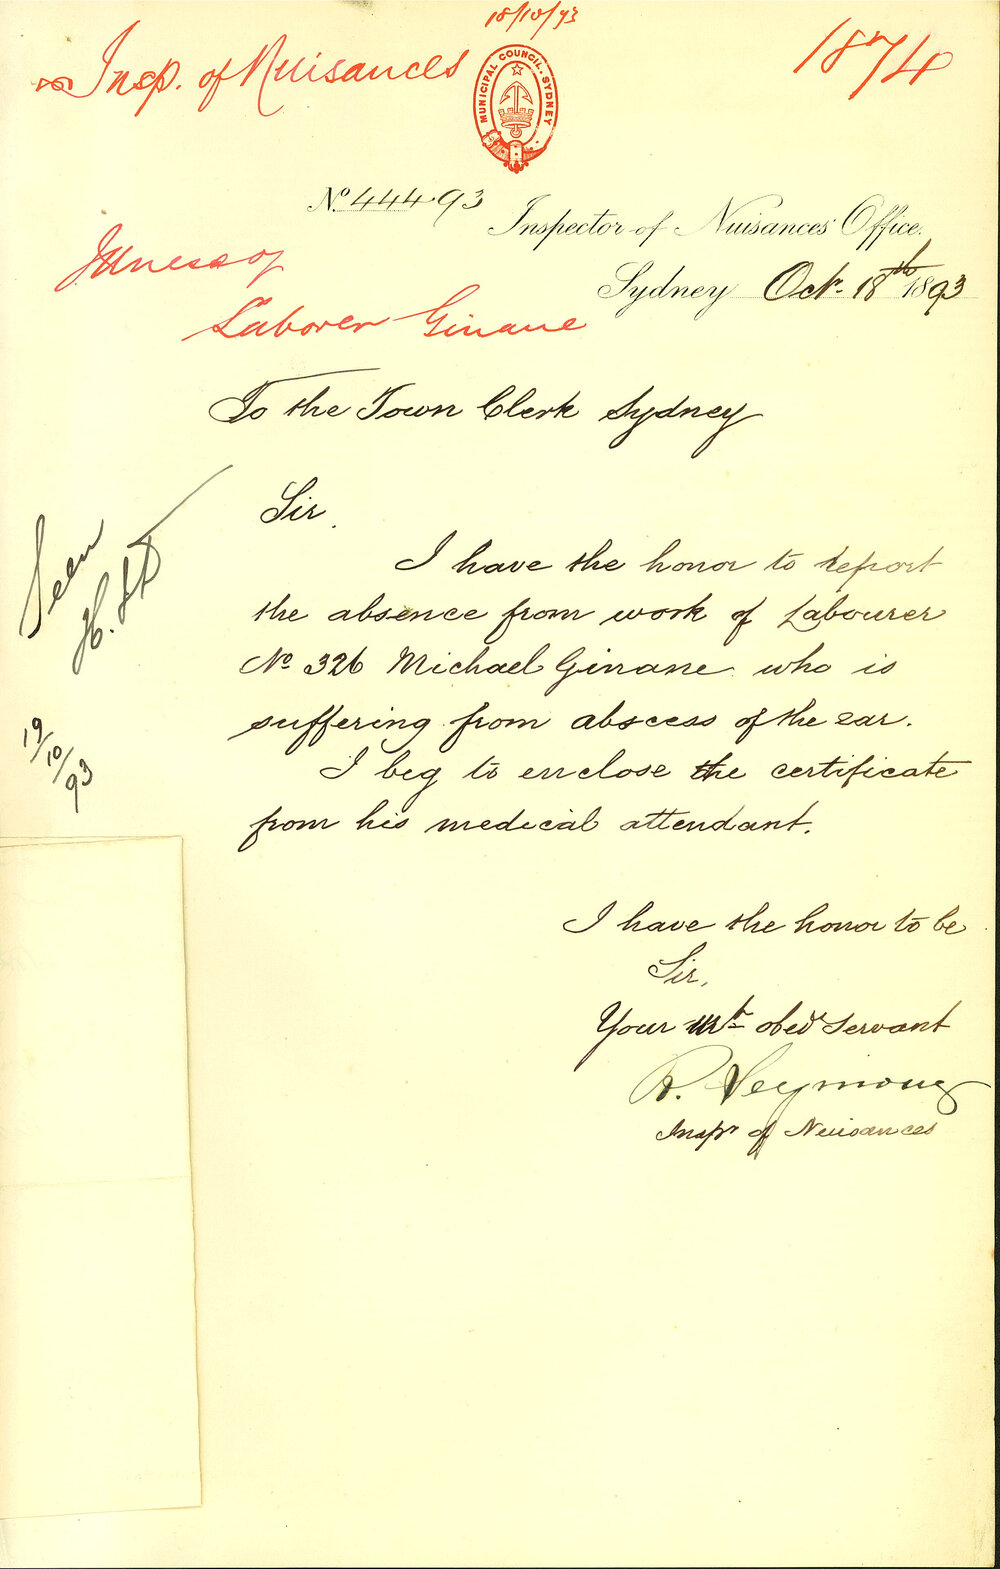 18/10/93
Insp. of Nuisances
1874
MUNICIPAL COUNCIL. SYDNEY
No. 444 93
Inspector of Nuisances Office.
Illness of
Sydney Oct. 18th 1893
Laborer Ginane
To the Town Clerk Sydney
Sir
I have the honor to report
the absence from work of Labourer
No. 326 Michael Ginane who is
suffering from abscess of the ear.
I beg to enclose the certificate
from his medical attendant.
Seen
19/10/93
I have the honor to be
Sir,
Your mt obed servant
R. Seymour
Inspr of Nuisances